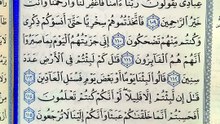 عِبَادِى يَقُولُونَ رَبَّنَآ ءَامَنَّا فَٱغْفِرْ لَنَا وَٱرْحَمْنَا وَأَنتَ
خَيْرُ ٱلرَّٰحِمِينَ ١٠٩ فَٱتَّخَذْتُمُوهُمْ سِخْرِيًّا حَتَّىٰٓ أَنسَوْكُمْ ذِكْرِى
وَكُنتُم مِّنْهُمْ تَضْحَكُونَ ١١٠ إِنِّى جَزَيْتُهُمُ ٱلْيَوْمَ بِمَا صَبَرُوٓا۟
أَنَّهُمْ هُمُ ٱلْفَآئِزُونَ ١١١ قَٰلَ كَمْ لَبِثْتُمْ فِى ٱلْأَرْضِ عَدَدَ
سِنِينَ ١١٢ قَالُوا۟ لَبِثْنَا يَوْمًا أَوْ بَعْضَ يَوْمٍ فَسْـَٔلِ ٱلْعَآدِّينَ ١١٣
قَٰلَ إِن لَّبِثْتُمْ إِلَّا قَلِيلًا لَّوْ أَنَّكُمْ كُنتُمْ تَعْلَمُونَ ١١٤
أَفَحَسِبْتُمْ أَنَّمَا خَلَقْنَٰكُمْ عَبَثًا وَأَنَّكُمْ إِلَيْنَا لَا تُرْجَعُونَ ١١٥